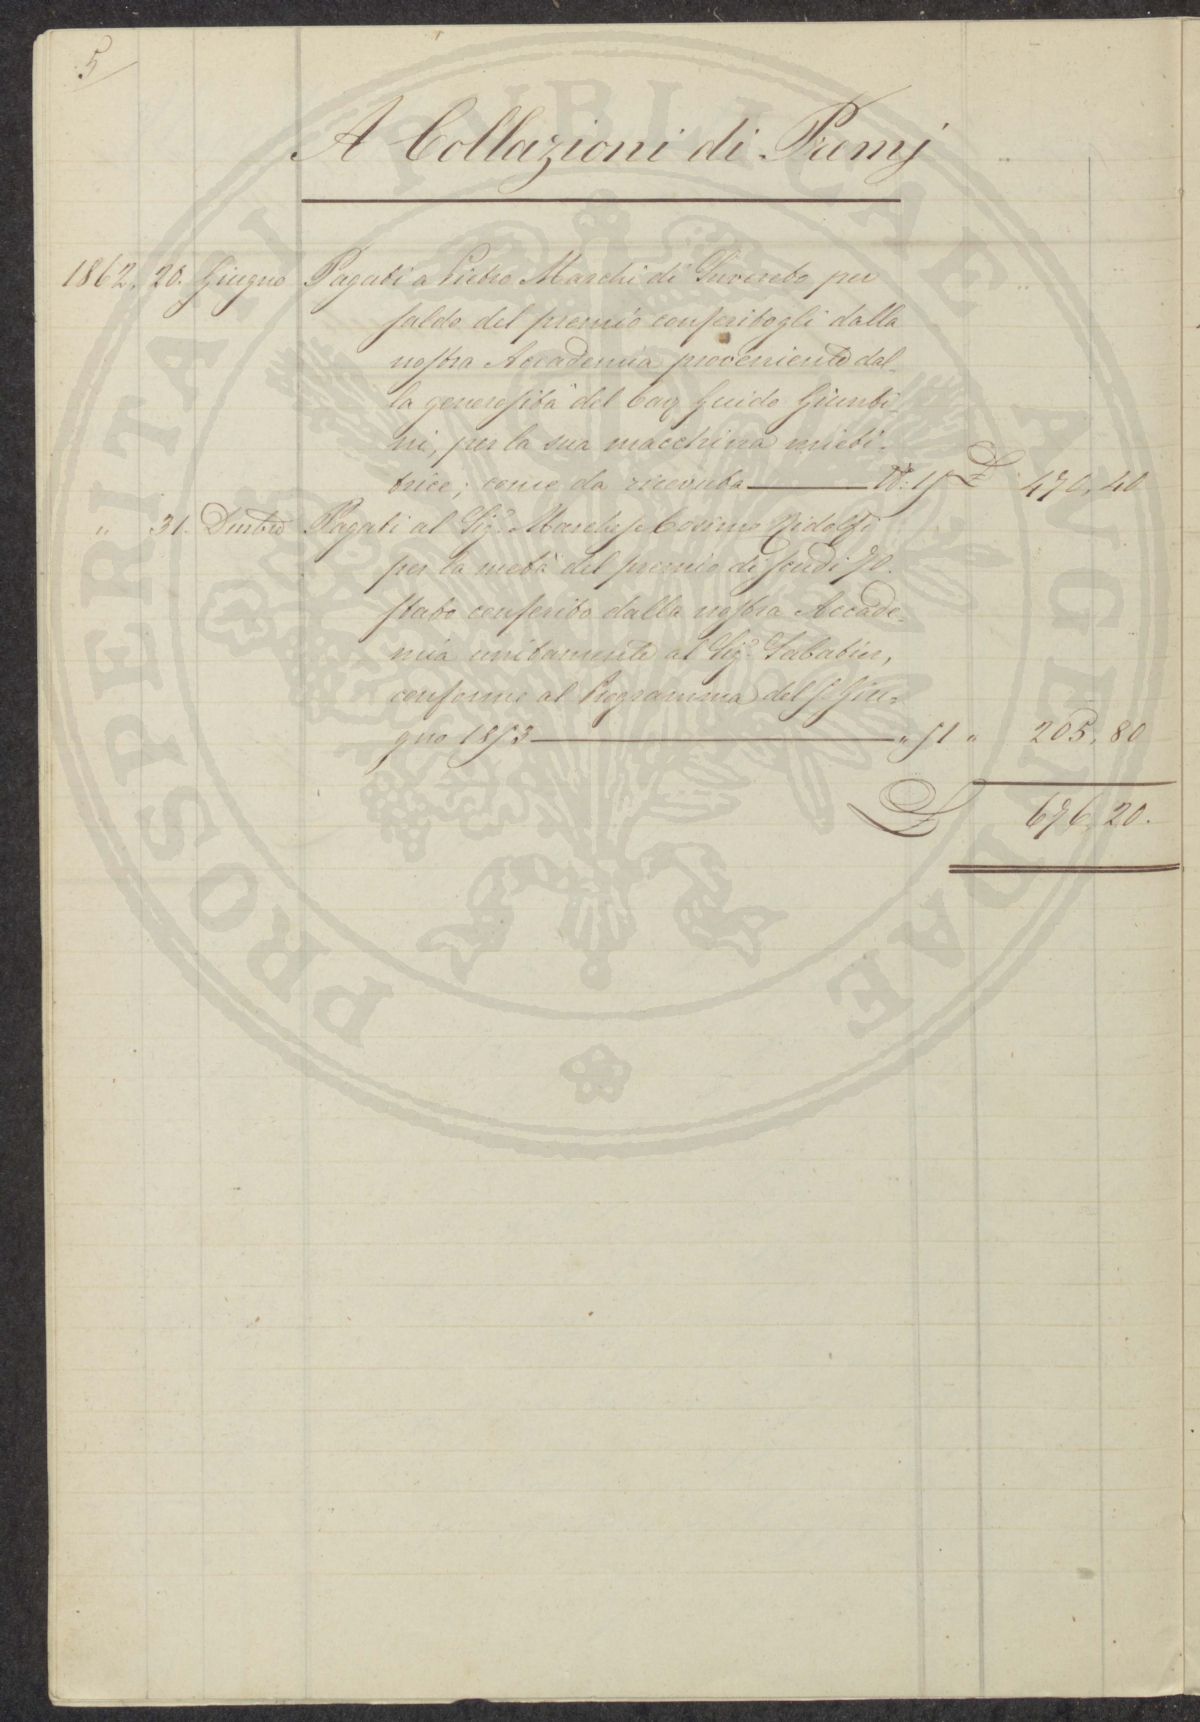 5
A Collazioni di Premj
1862. 20. Giugno Pagati a Pietro Marchi di per
saldo del premio conferitogli dalla
nostra Accademia proveniente dal-
la generosità del Cav. Guido Giunti-
ni, per la sua macchina mieti-
trice; come da ricevuta £ 470. 40
" 31. Dmbre Pagati al Sig. Marchese Cosimo Ridolfi
per la metà del premio di scudi 70.
stato conferito dalla nostra Accade-
mia unitamente al Sig. Sabatier,
conforme al Programma del Giu-
gno 1853 " 51 " 205. 80
£ 676. 20.
PROSPERITATI PUBLICAE AUGENDAE